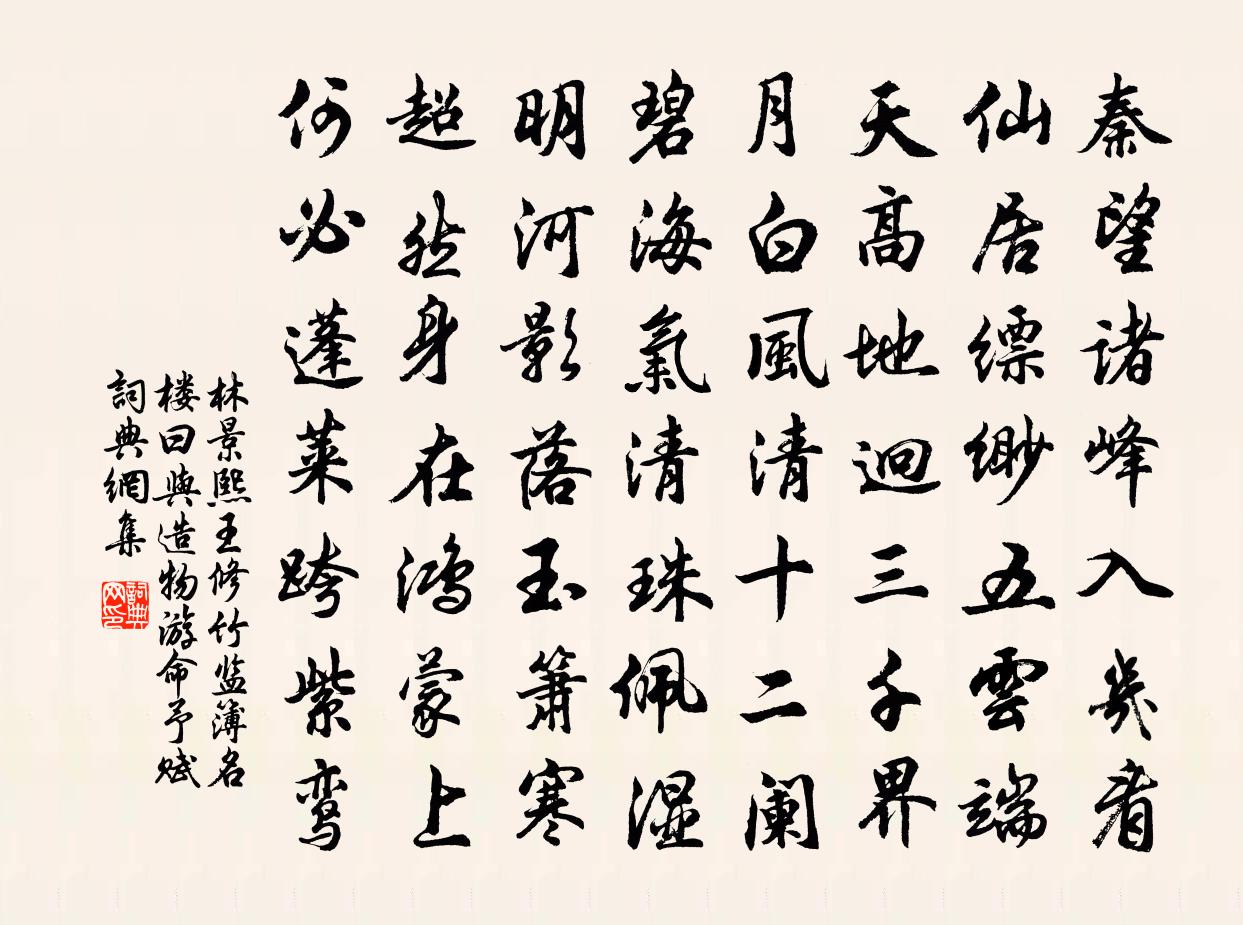 秦望諸峰入几看
仙居縹緲五雲端
天高地迥三千界
月白風清十二闌
碧海氣清珠佩湿
明河影落玉簫寒
超然身在鸿蒙上
何必蓬莱跨紫鸾
林景熙王修竹监簿名
楼曰與造物游命予赋
詞典網集
詞典网印